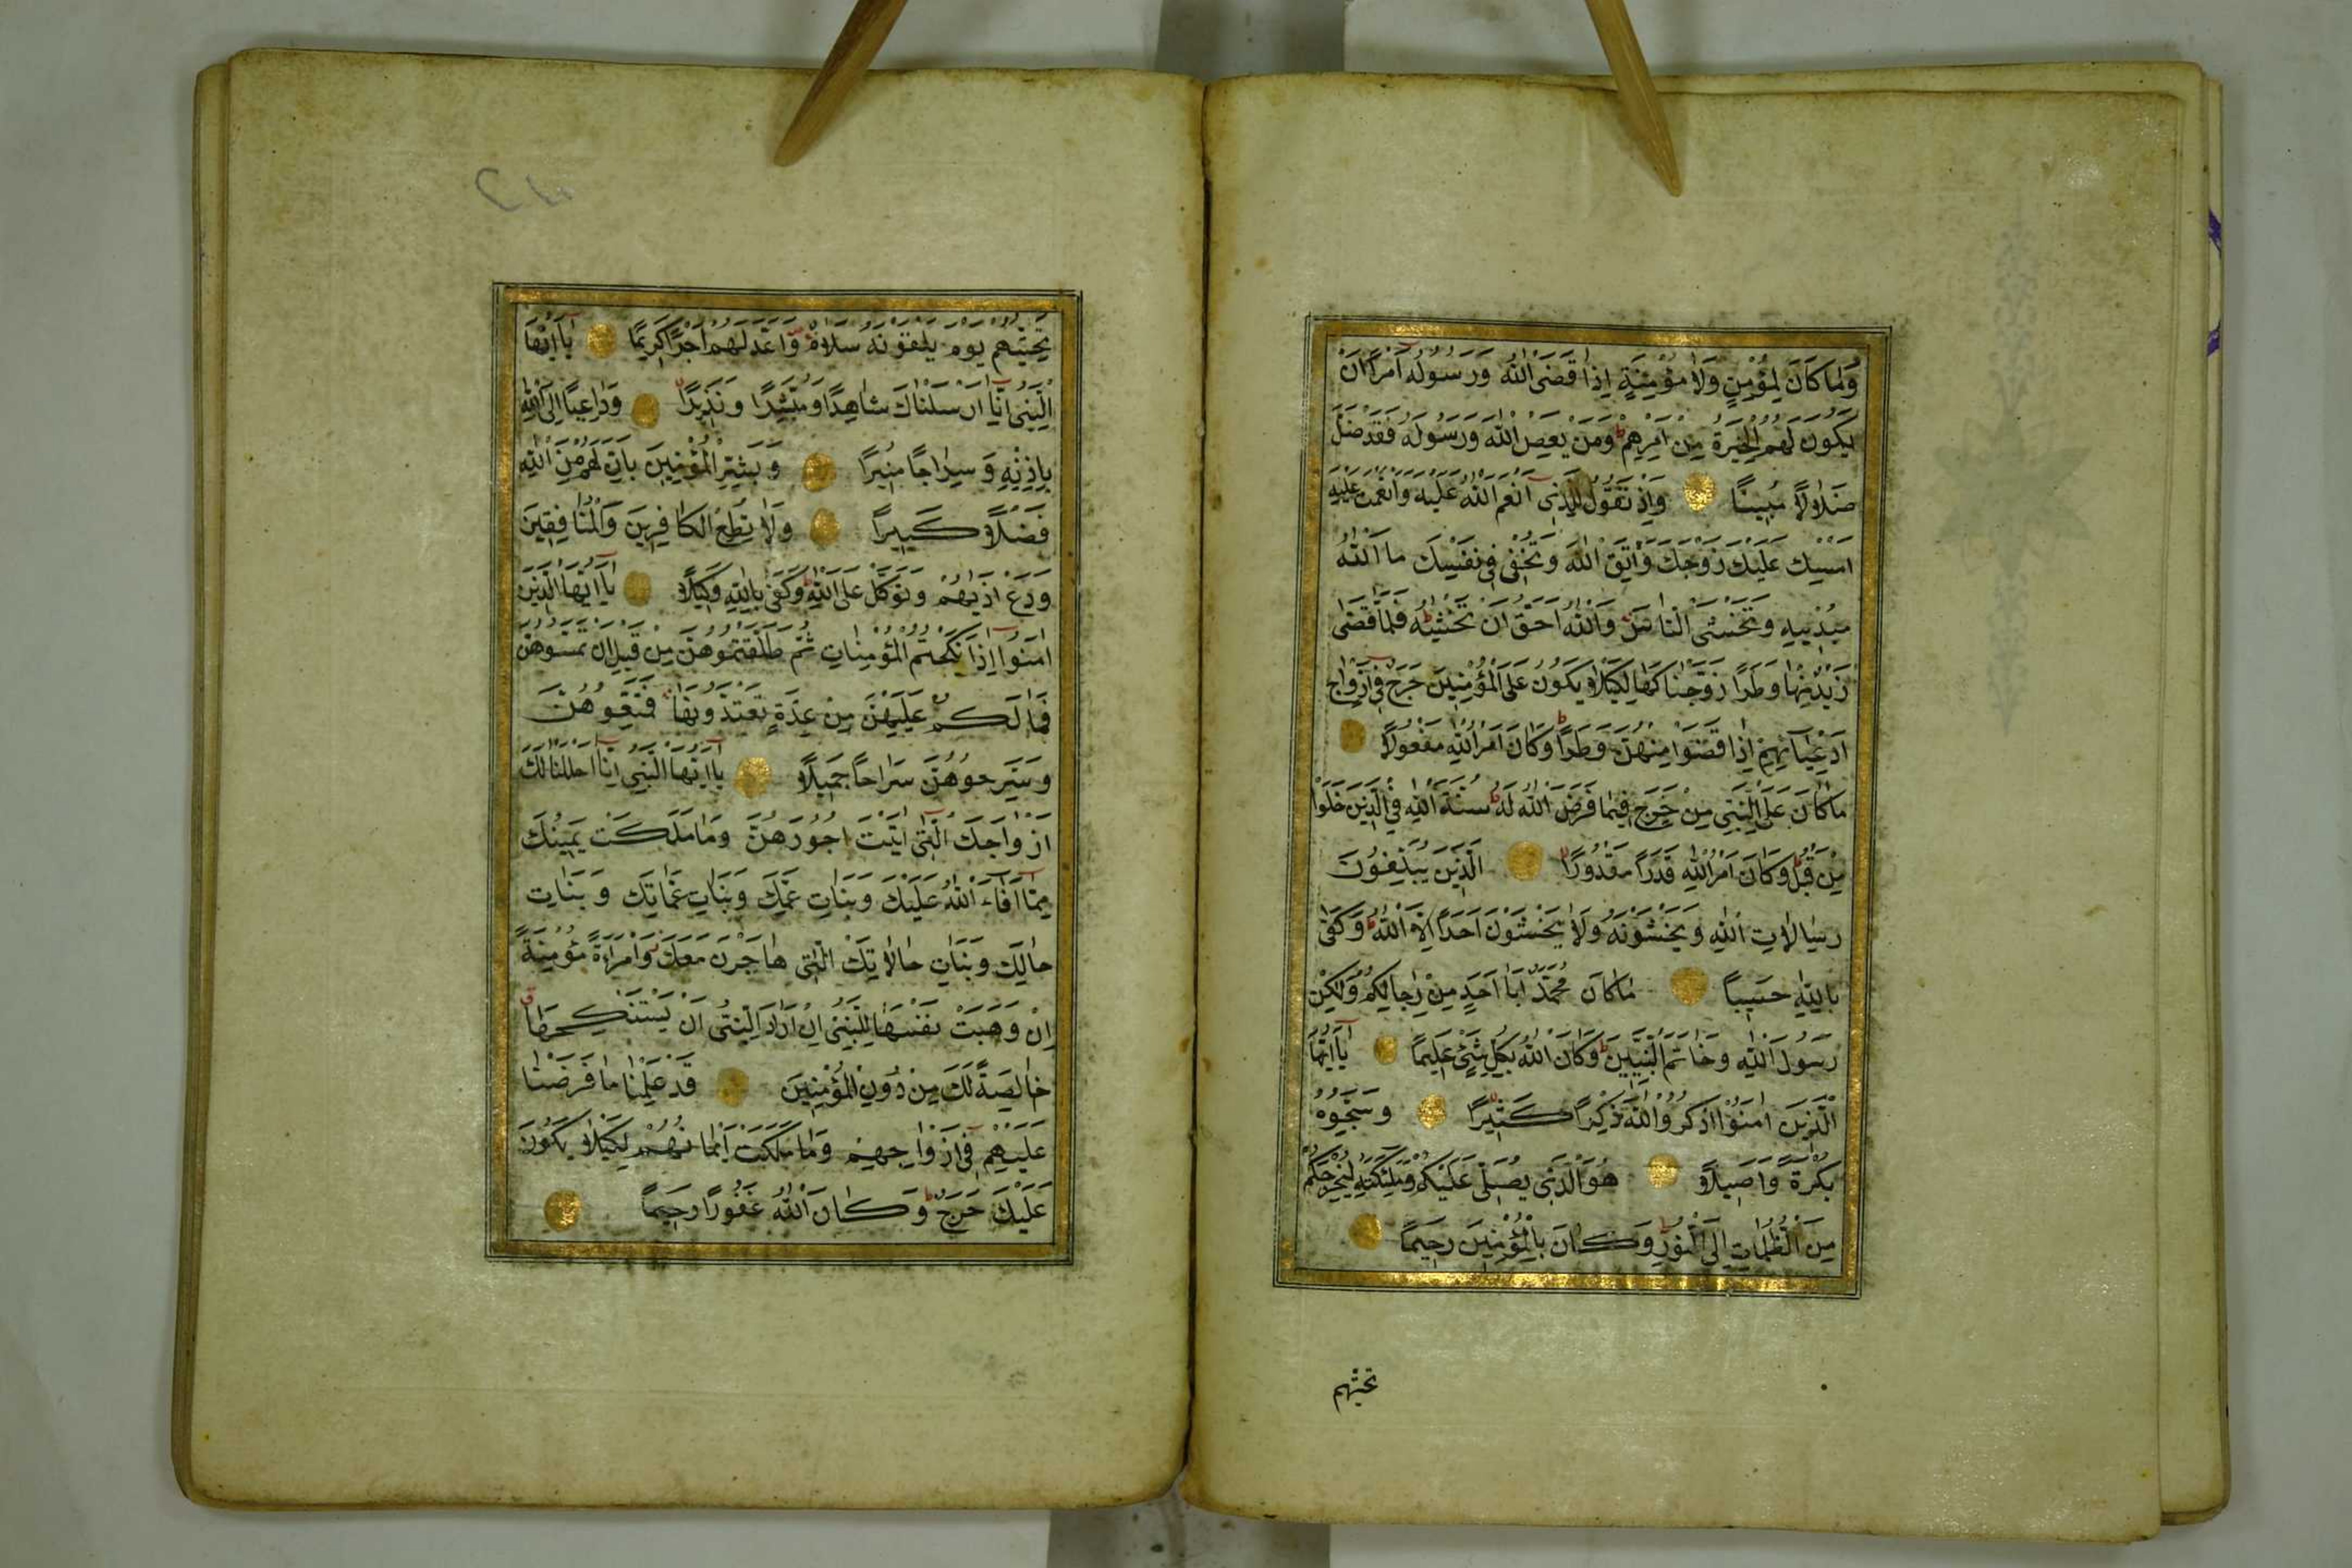 وَمَا كَانَ لِمُؤْمِنٍ وَلَا مُؤْمِنَةٍ اِذَا قَضَى اللّٰهُ وَرَسُولُهُ اَمْرًا اَنْ
يَكُونَ لَهُمُ الْخِيَرَةُ مِنْ اَمْرِهِمْ وَمَنْ يَعْصِ اللّٰهَ وَرَسُولَهُ فَقَدْ ضَلَّ
ضَلَالًا مُبِينًا وَاِذْ تَقُولُ لِلَّذِى اَنْعَمَ اللّٰهُ عَلَيْهِ وَاَنْعَمْتَ عَلَيْهِ
اَمْسِكْ عَلَيْكَ زَوْجَكَ وَاتَّقِ اللّٰهَ وَتُخْفِى فِى نَفْسِكَ مَا اللّٰهُ
مُبْدِيهِ وَتَخْشَى النَّاسَ وَاللّٰهُ اَحَقُّ اَنْ تَخْشٰيهُ فَلَمَّا قَضٰى
زَيْدٌ مِنْهَا وَطَرًا زَوَّجْنَاكَهَا لِكَيْلَا يَكُونَ عَلَى الْمُؤْمِنِينَ حَرَجٌ فِى اَزْوَاجِ
اَدْعِيَآئِهِمْ اِذَا قَضَوْا مِنْهُنَّ وَطَرًا وَكَانَ اَمْرُ اللّٰهِ مَفْعُولًا
مَا كَانَ عَلَى النَّبِىِّ مِنْ حَرَجٍ فِيمَا فَرَضَ اللّٰهُ لَهُ سُنَّةَ اللّٰهِ فِى الَّذِينَ خَلَوْا
مِنْ قَبْلُ وَكَانَ اَمْرُ اللّٰهِ قَدَرًا مَقْدُورًا الَّذِينَ يُبَلِّغُونَ
رِسَالَاتِ اللّٰهِ وَيَخْشَوْنَهُ وَلَا يَخْشَوْنَ اَحَدًا اِلَّا اللّٰهَ وَكَفٰى
بِاللّٰهِ حَسِيبًا مَا كَانَ مُحَمَّدٌ اَبَا اَحَدٍ مِنْ رِجَالِكُمْ وَلٰكِنْ
رَسُولَ اللّٰهِ وَخَاتَمَ النَّبِيِّينَ وَكَانَ اللّٰهُ بِكُلِّ شَىْءٍ عَلِيمًا يَآ اَيُّهَا
الَّذِينَ اٰمَنُوا اذْكُرُوا اللّٰهَ ذِكْرًا كَثِيرًا وَسَبِّحُوهُ
بُكْرَةً وَاَصِيلًا هُوَ الَّذِى يُصَلِّى عَلَيْكُمْ وَمَلٰٓئِكَتُهُ لِيُخْرِجَكُمْ
مِنَ الظُّلُمَاتِ اِلَى النُّورِ وَكَانَ بِالْمُؤْمِنِينَ رَحِيمًا
تحيتهم
تَحِيَّتُهُمْ يَوْمَ يَلْقَوْنَهُ سَلَامٌ وَاَعَدَّ لَهُمْ اَجْرًا كَرِيمًا يَآ اَيُّهَا
النَّبِىُّ اِنَّآ اَرْسَلْنَاكَ شَاهِدًا وَمُبَشِّرًا وَنَذِيرًا وَدَاعِيًا اِلَى اللّٰهِ
بِاِذْنِهِ وَسِرَاجًا مُنِيرًا وَبَشِّرِ الْمُؤْمِنِينَ بِاَنَّ لَهُمْ مِنَ اللّٰهِ
فَضْلًا كَبِيرًا وَلَا تُطِعِ الْكَافِرِينَ وَالْمُنَافِقِينَ
وَدَعْ اَذٰيهُمْ وَتَوَكَّلْ عَلَى اللّٰهِ وَكَفٰى بِاللّٰهِ وَكِيلًا يَآ اَيُّهَا الَّذِينَ
اٰمَنُوا اِذَا نَكَحْتُمُ الْمُؤْمِنَاتِ ثُمَّ طَلَّقْتُمُوهُنَّ مِنْ قَبْلِ اَنْ تَمَسُّوهُنَّ
فَمَا لَكُمْ عَلَيْهِنَّ مِنْ عِدَّةٍ تَعْتَدُّونَهَا فَمَتِّعُوهُنَّ
وَسَرِّحُوهُنَّ سَرَاحًا جَمِيلًا يَآ اَيُّهَا النَّبِىُّ اِنَّآ اَحْلَلْنَا لَكَ
اَزْوَاجَكَ الّٰتِىٓ اٰتَيْتَ اُجُورَهُنَّ وَمَا مَلَكَتْ يَمِينُكَ
مِمَّآ اَفَآءَ اللّٰهُ عَلَيْكَ وَبَنَاتِ عَمِّكَ وَبَنَاتِ عَمَّاتِكَ وَبَنَاتِ
خَالِكَ وَبَنَاتِ خَالَاتِكَ الّٰتِى هَاجَرْنَ مَعَكَ وَامْرَاَةً مُؤْمِنَةً
اِنْ وَهَبَتْ نَفْسَهَا لِلنَّبِىِّ اِنْ اَرَادَ النَّبِىُّ اَنْ يَسْتَنْكِحَهَا
خَالِصَةً لَكَ مِنْ دُونِ الْمُؤْمِنِينَ قَدْ عَلِمْنَا مَا فَرَضْنَا
عَلَيْهِمْ فِىٓ اَزْوَاجِهِمْ وَمَا مَلَكَتْ اَيْمَانُهُمْ لِكَيْلَا يَكُونَ
عَلَيْكَ حَرَجٌ وَكَانَ اللّٰهُ غَفُورًا رَحِيمًا